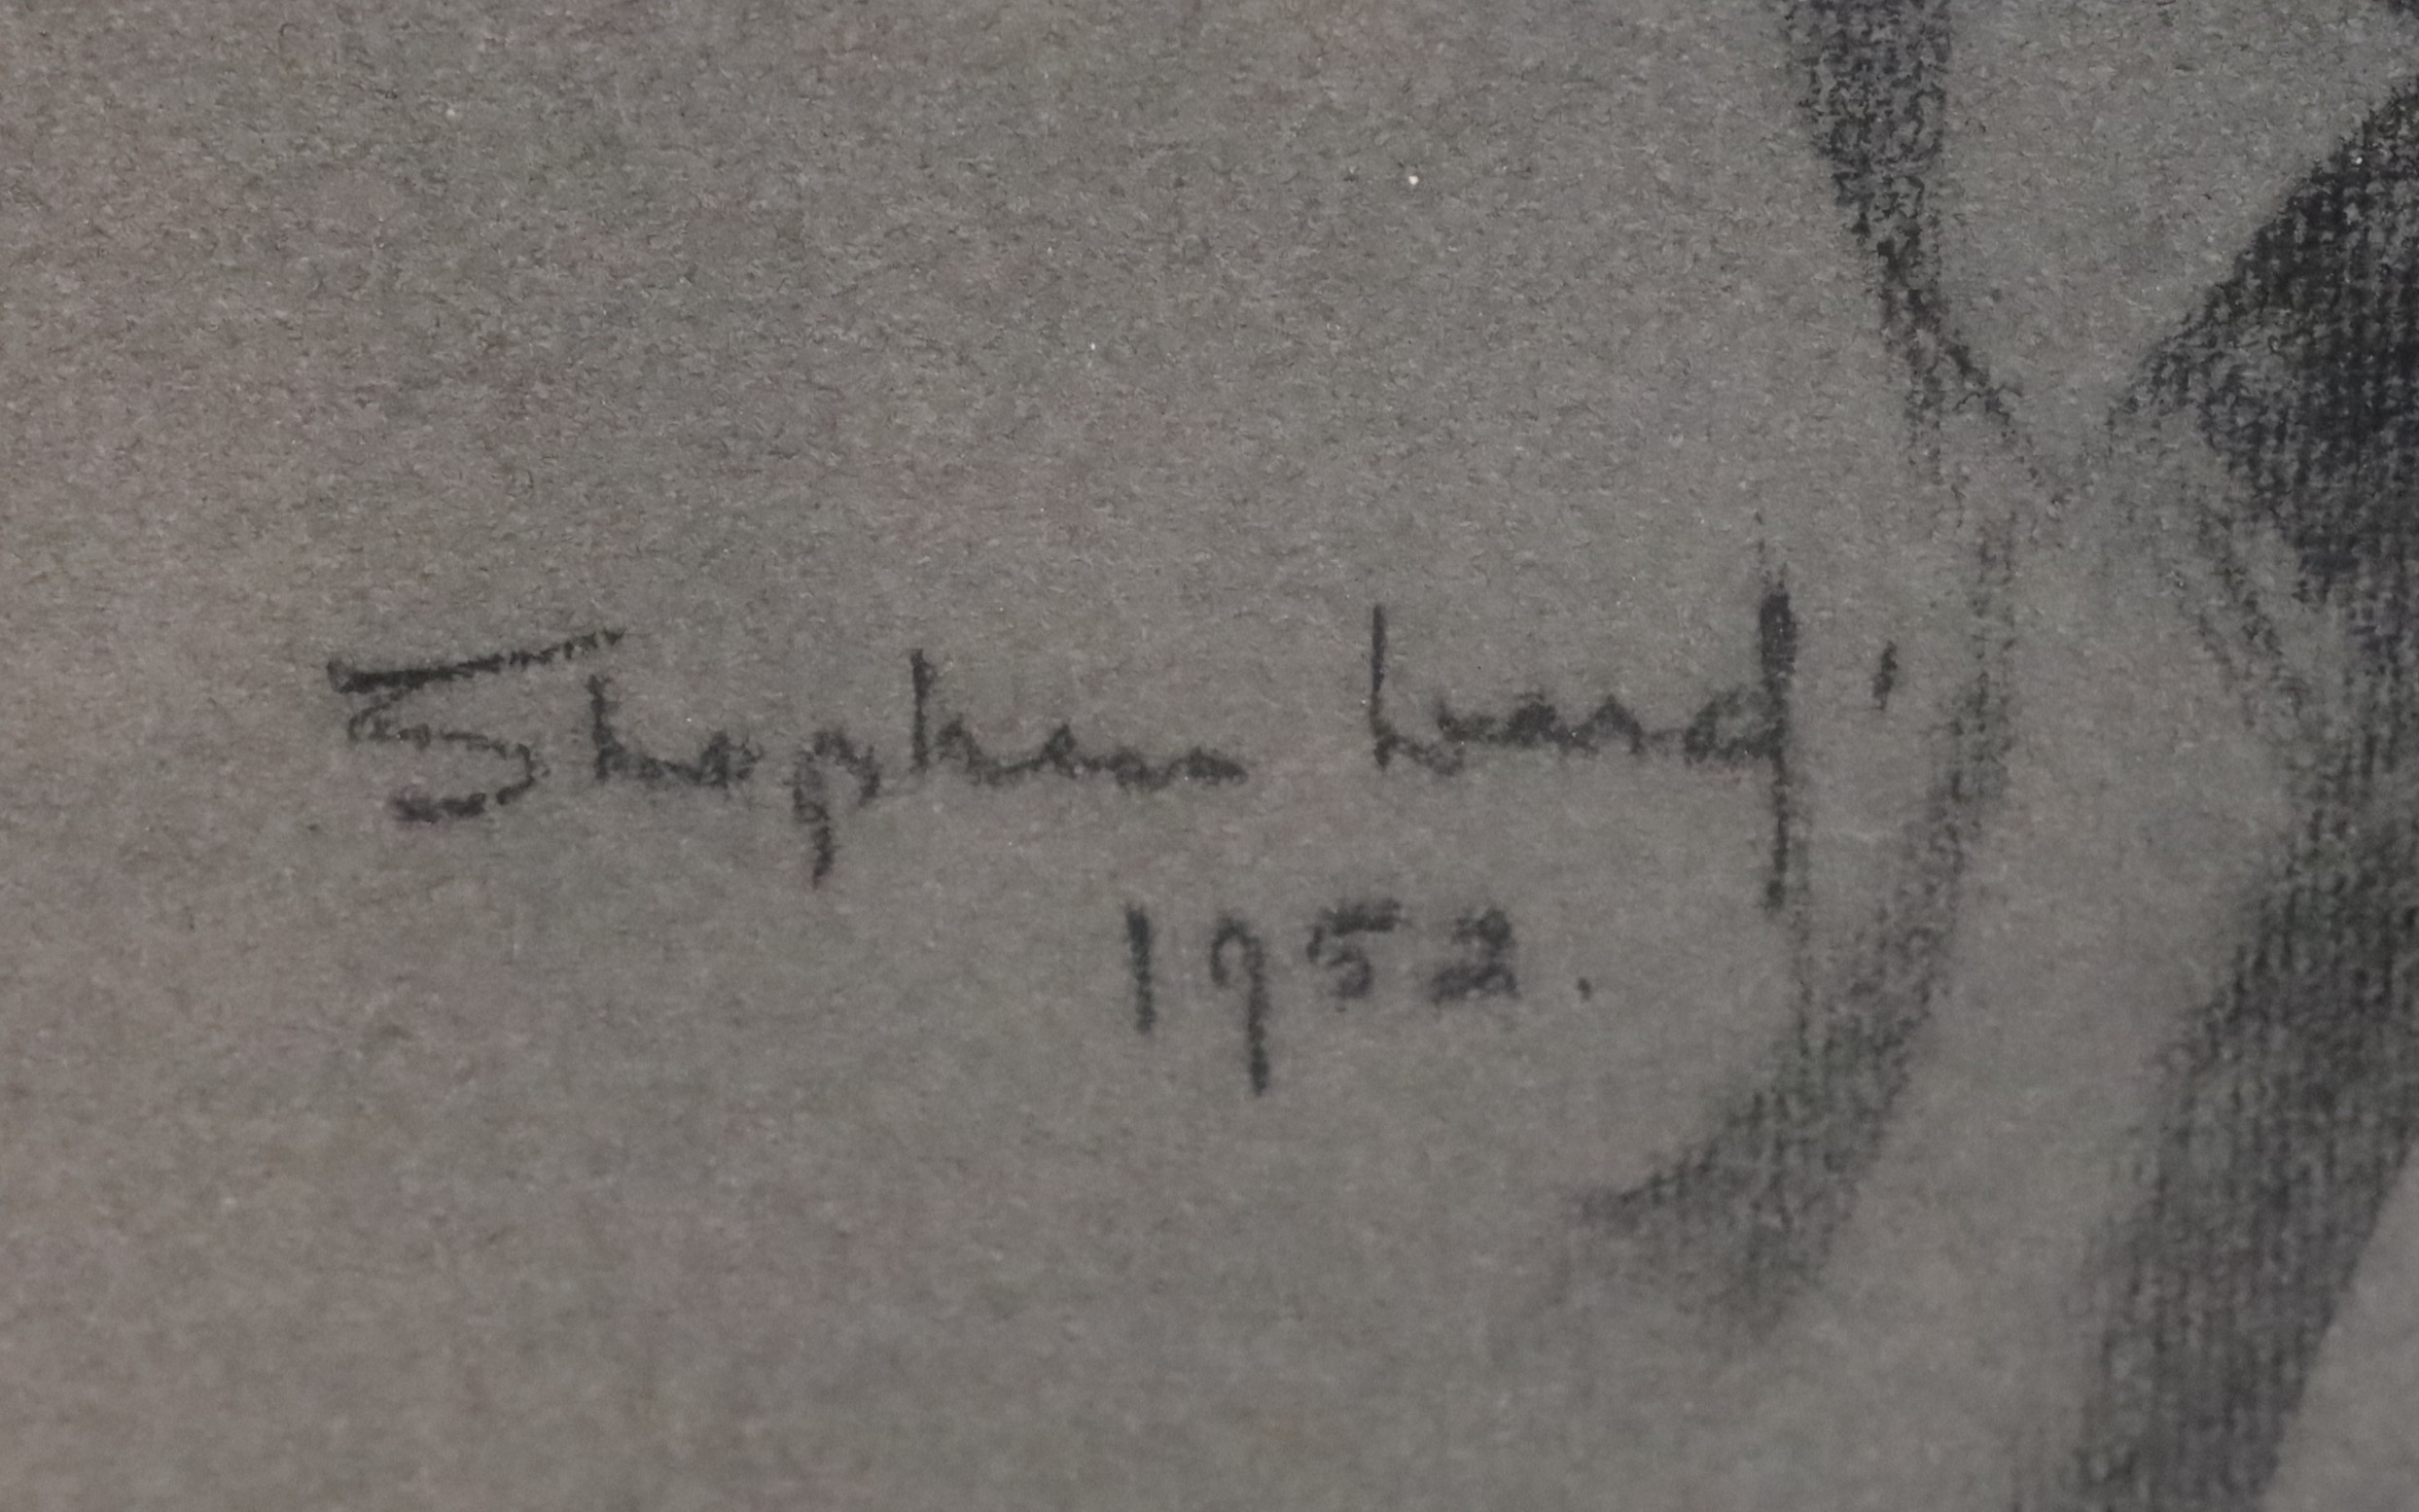 Stephen Ward
1952.